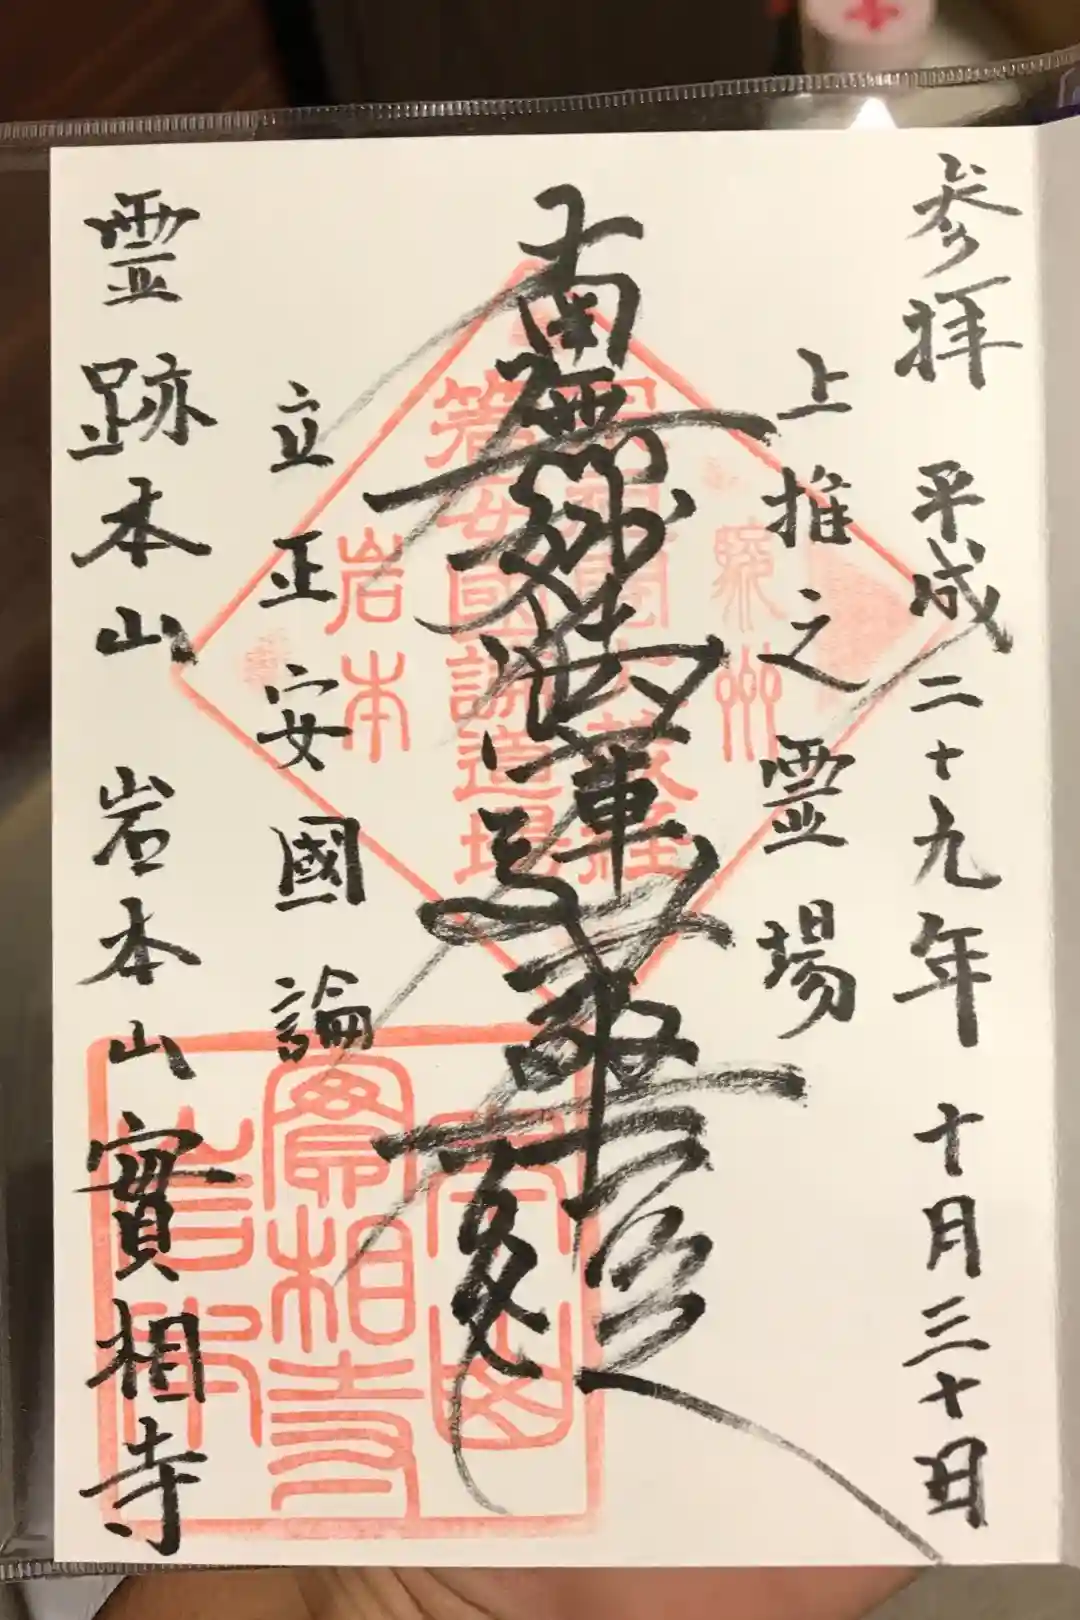 参拝 平成二十九年 十月三十日
上推之霊場
南無妙法蓮華経
立正安國論
霊跡本山 岩本山實相寺
岩本
實相寺